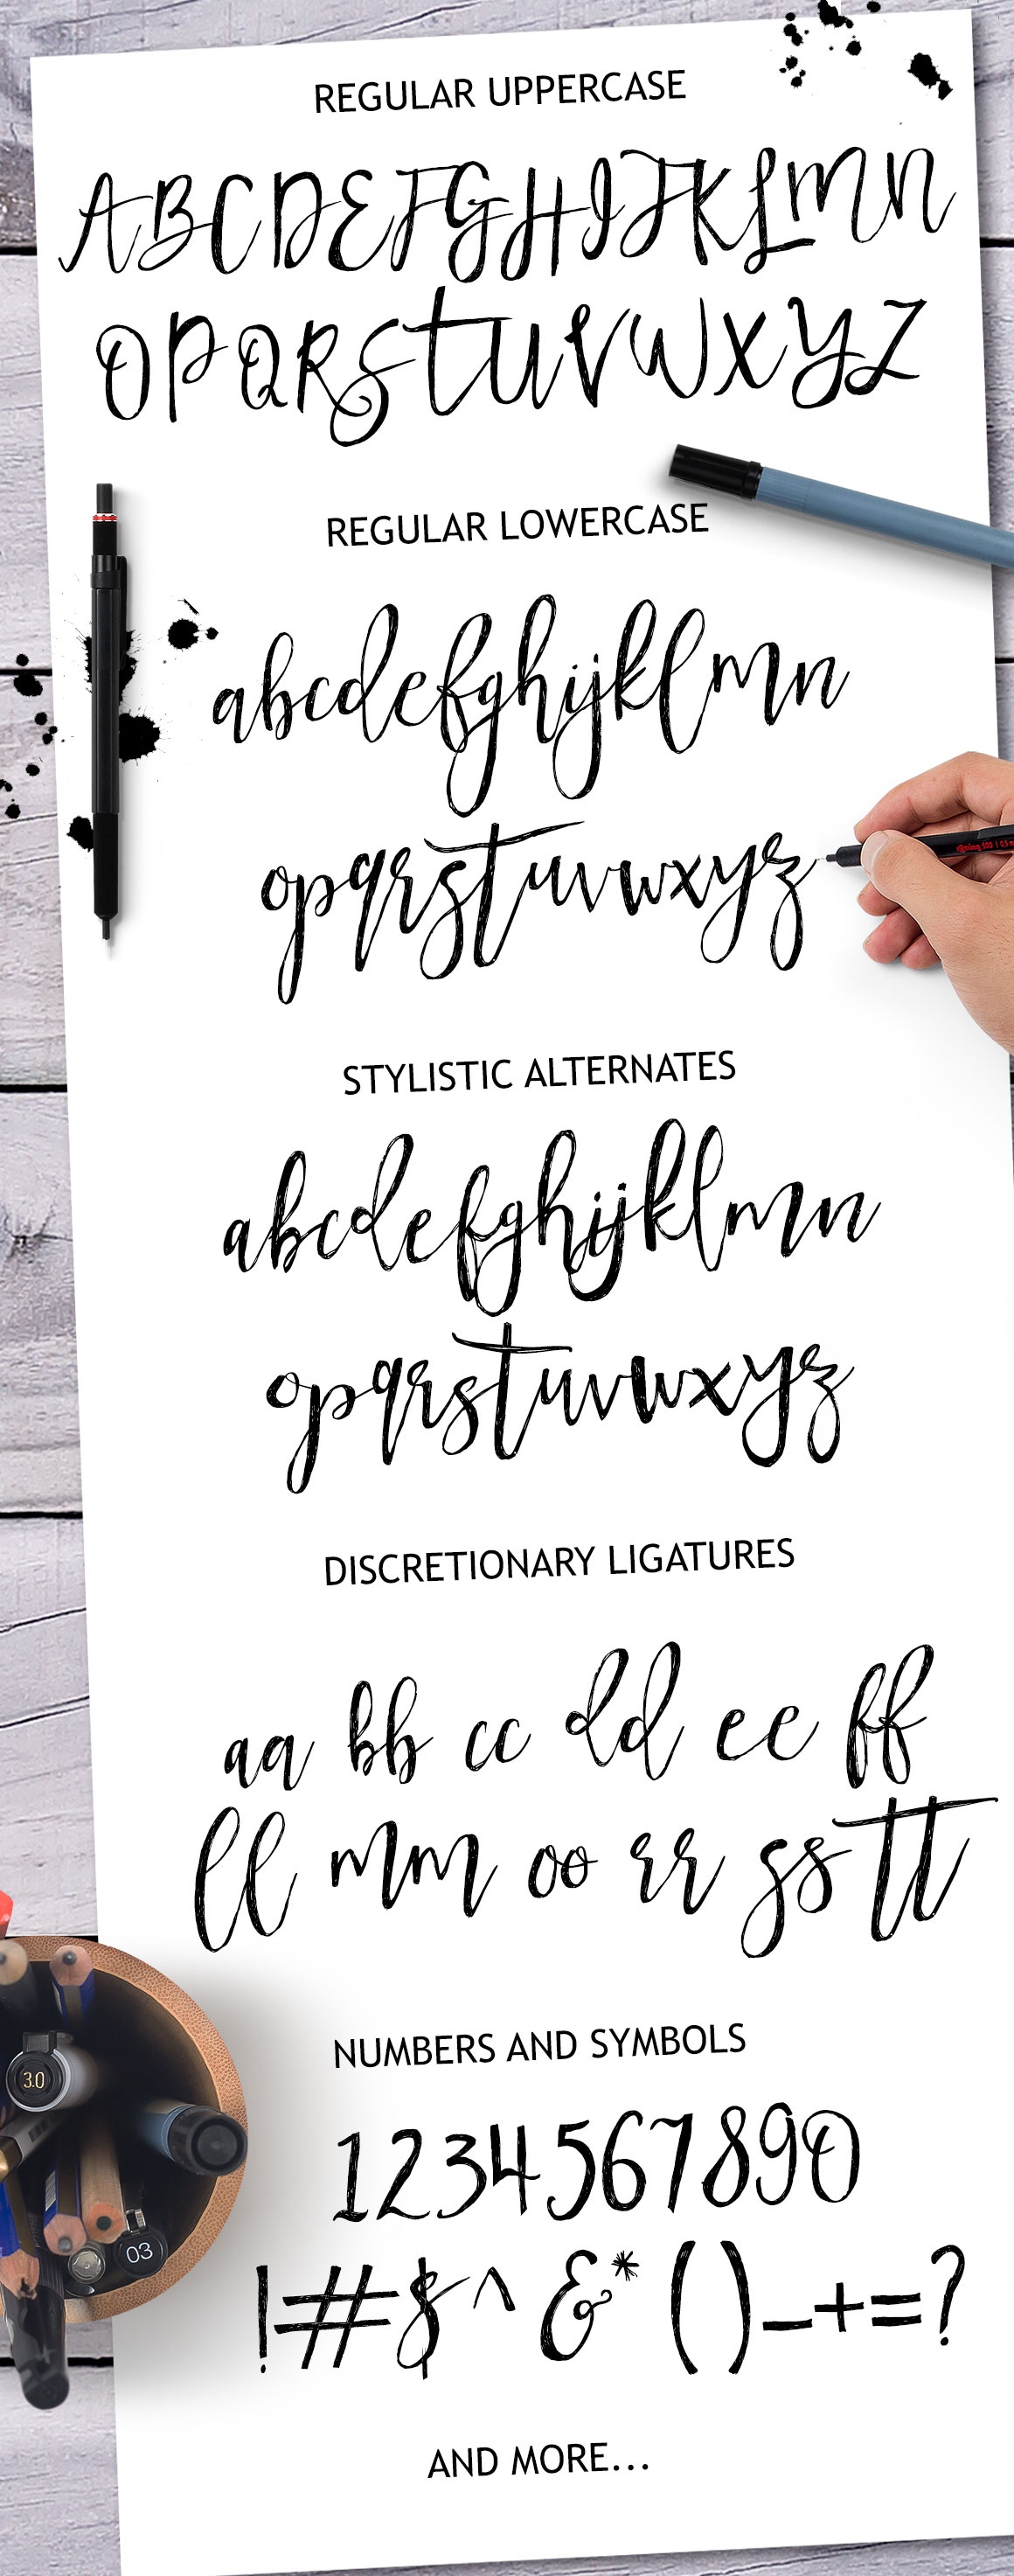 REGULAR UPPERCASE
ABCDEFGHIJKLMN
OPQRSTUVWXYZ
REGULAR LOWERCASE
abcdefghijklmn
opqrstuvwxyz
STYLISTIC ALTERNATES
abcdefghijklmn
opqrstuvwxyz
DISCRETIONARY LIGATURES
aa bb cc dd ee ff
ll mm oo rr ss tt
NUMBERS AND SYMBOLS
3.0
1234567890
03
!#$^&*()-+=?
AND MORE...